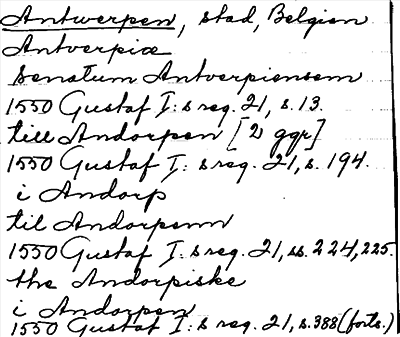 Antwerpen, stad, Belgien
Antverpiæ
Senatum Antverpiensem
1550 Gustaf I:s reg. 21, s. 13.
till Andorpen [2 ggr]
1550 Gustaf I:s reg. 21, s. 194.
i Andorp
til Andorpenn
1550 Gustaf I:s reg. 21, ss. 224, 225.
the Andorpiske
i Andorpen
1550 Gustaf I:s reg. 21, s. 388 (forts.)